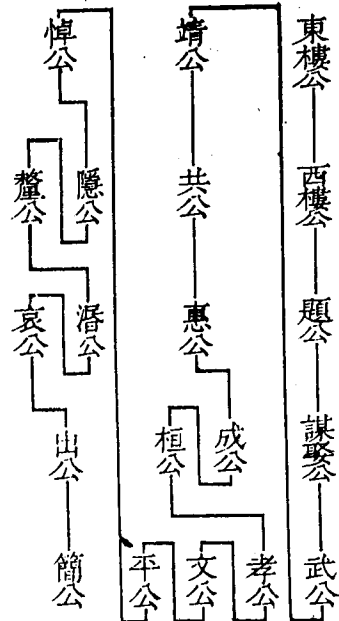 東樓公
西樓公
題公
謀娶公
武公
靖公
共公
惠公
成公
桓公
孝公
文公
平公
悼公
隱公
釐公
湣公
哀公
出公
簡公